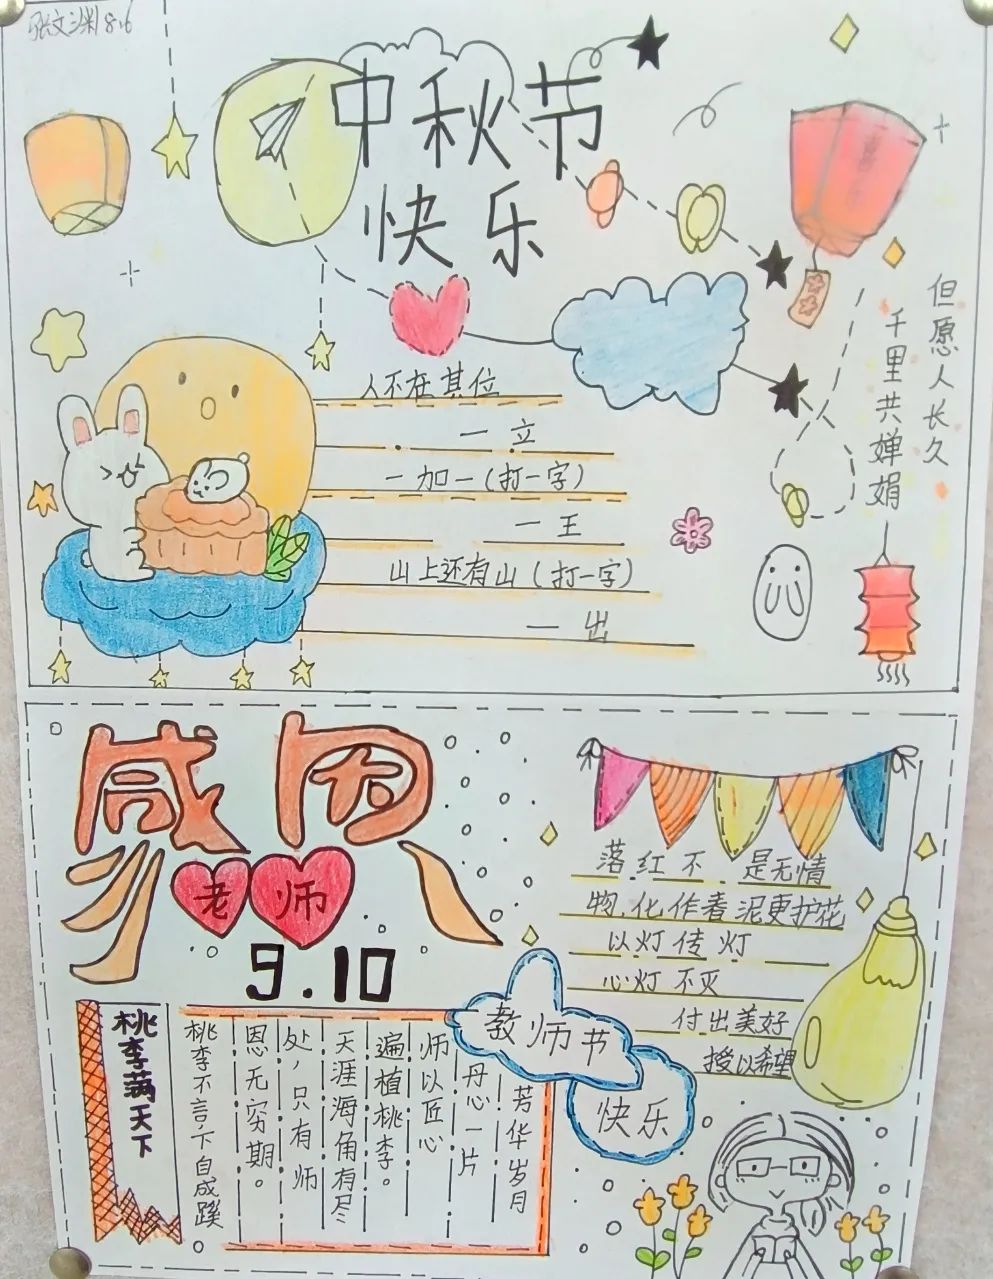 张文渊8.6
中秋节
快乐
但愿人长久
千里共婵娟
人不在其位
一立
一加一(打一字)
一王
山上还有山(打一字)
一出
感恩
老师
9.10
落红不是无情
物,化作春泥更护花
以灯传灯
心灯不灭
付出美好
授以希望
教师节
快乐
桃李满天下
芳华岁月
丹心一片
师以匠心
遍植桃李。
天涯海角有尽
处,只有师
恩无穷期。
桃李不言,下自成蹊